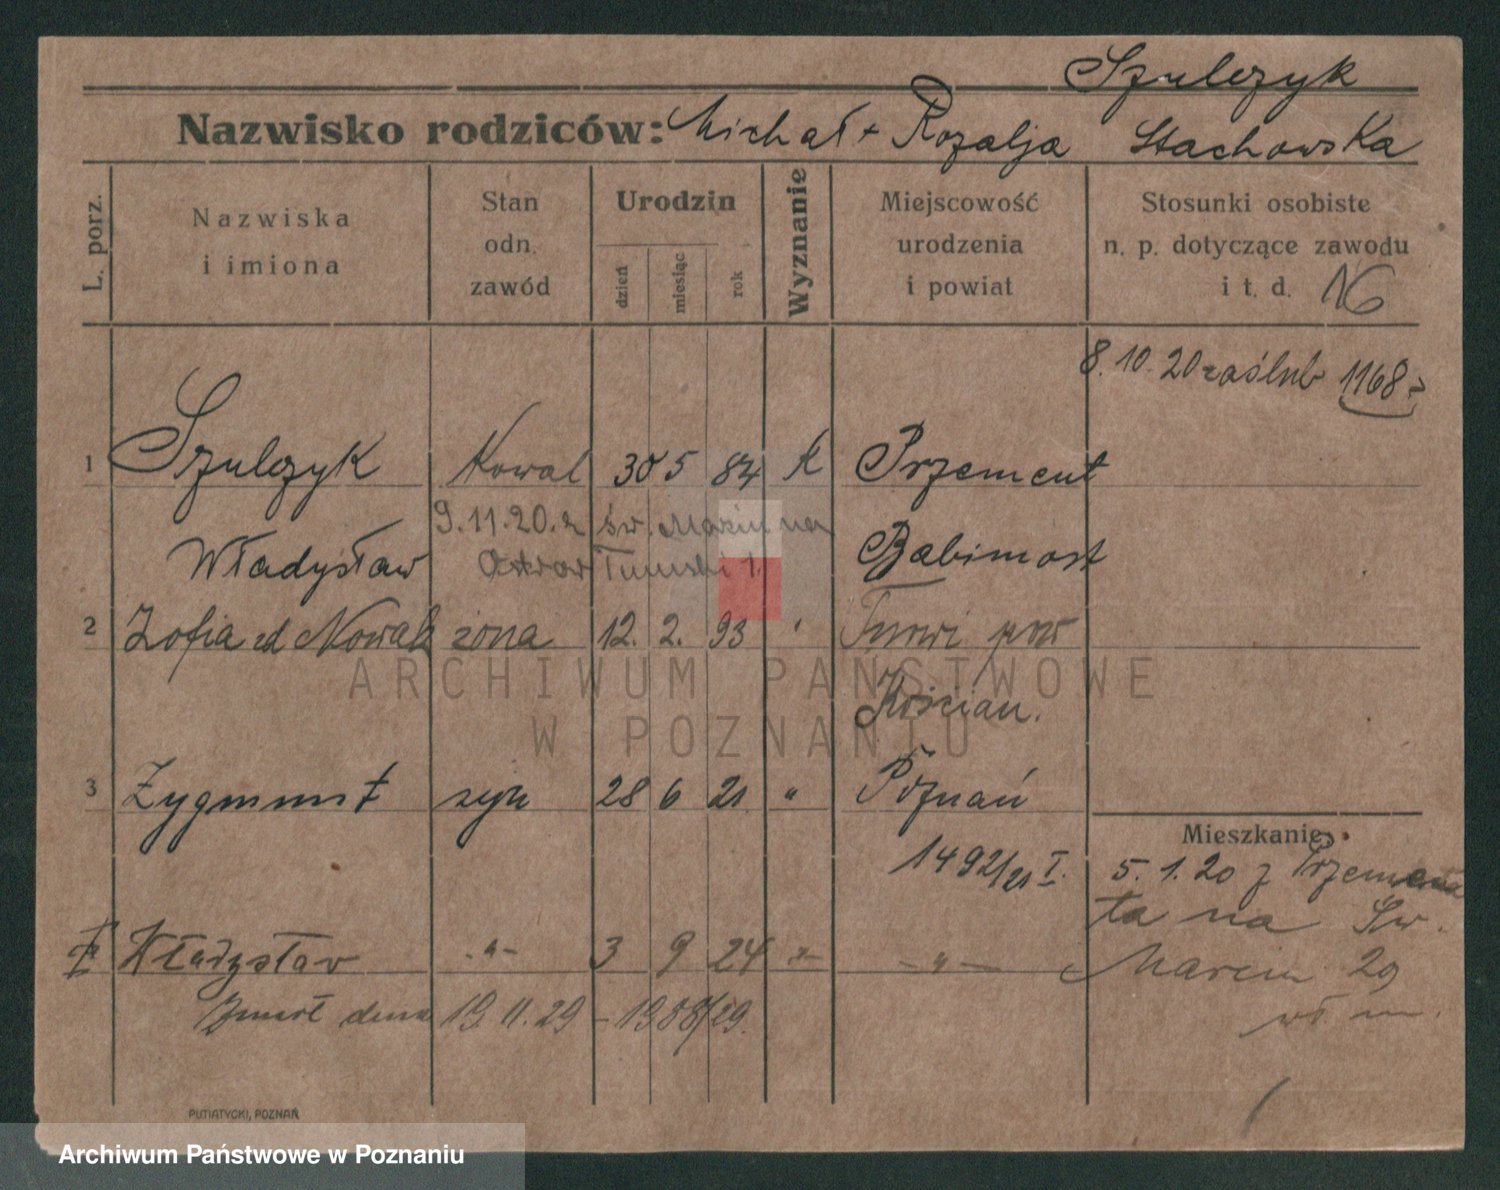 Szulczyk
Nazwisko rodziców: Michał + Rozalja Stachowska
L. porz.
Nazwiska
i imiona
Stan
odn.
zawód
Urodzin
dzień
miesiąc
rok
Wyznanie
Miejscowość
urodzenia
i powiat
Stosunki osobiste
n. p. dotyczące zawodu
i t. d. 16
8.10.20 zaślub 1168
1 Szulczyk Kowal 30 5 84 k Przement
9.11.20. z św. Marcin na
Władysław Babimost
Ostrów Tumski 1.
2 Zofia zd Nowak żona 12. 2. 93 " Turwi pow
Kościan.
3 Zygmunt syn 28 6 21 " Poznań
1492/21 I.
Mieszkanie
5.1.20 z Przemen
ta na Św.
Marcin 29
Władysław -"- 3 9 24 -"- -"-
Zmarł dnia 19.11.29 - 1988/29.
PUTIATYCKI, POZNAŃ
ARCHIWUM PAŃSTWOWE
W POZNANIU
Archiwum Państwowe w Poznaniu